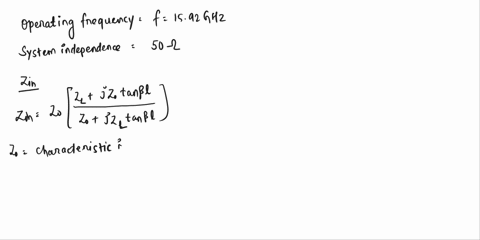 Operating frequency = f = 15.92 GHz
System independence = 50 Ω
Zin
Zin = Z0 [ ZL + jZ0 tanβl / Z0 + jZL tanβl ]
Z0 = characteristic i